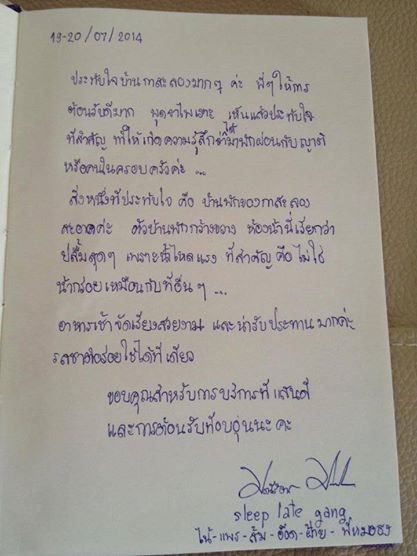 19-20/07/2014
ประทับใจบ้านกาสะลองมากๆ ค่ะ พี่ๆให้การ
ต้อนรับดีมาก พูดจาไพเราะ เห็นแล้วประทับใจ
ที่สำคัญ ทำให้เกิดความรู้สึกว่าได้มาพักผ่อนกับญาติ
หรือคนในครอบครัวค่ะ ...
สิ่งหนึ่งที่ประทับใจ คือ บ้านพักของกาสะลอง
สะอาดค่ะ ตัวบ้านพักกว้างขวาง ห้องน้ำนี่เรียกว่า
ปลื้มสุดๆ เพราะน้ำไหลแรง ที่สำคัญคือ ไม่ใช่
น้ำกร่อยเหมือนกับที่อื่นๆ ...
อาหารเช้าจัดเรียงสวยงาม และน่ารับประทานมากค่ะ
รสชาติอร่อยใช้ได้ทีเดียว
ขอบคุณสำหรับการบริการที่แสนดี
และการต้อนรับที่อบอุ่นนะคะ
sleep late gang
-แพร-ส้ม-อ๊อด-ฝ้าย-